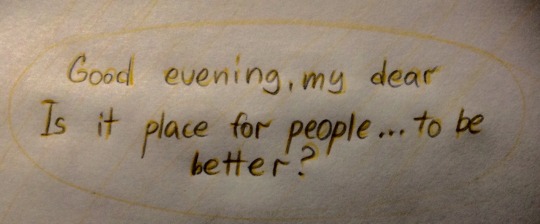 Good evening, my dear
Is it place for people... to be
better?